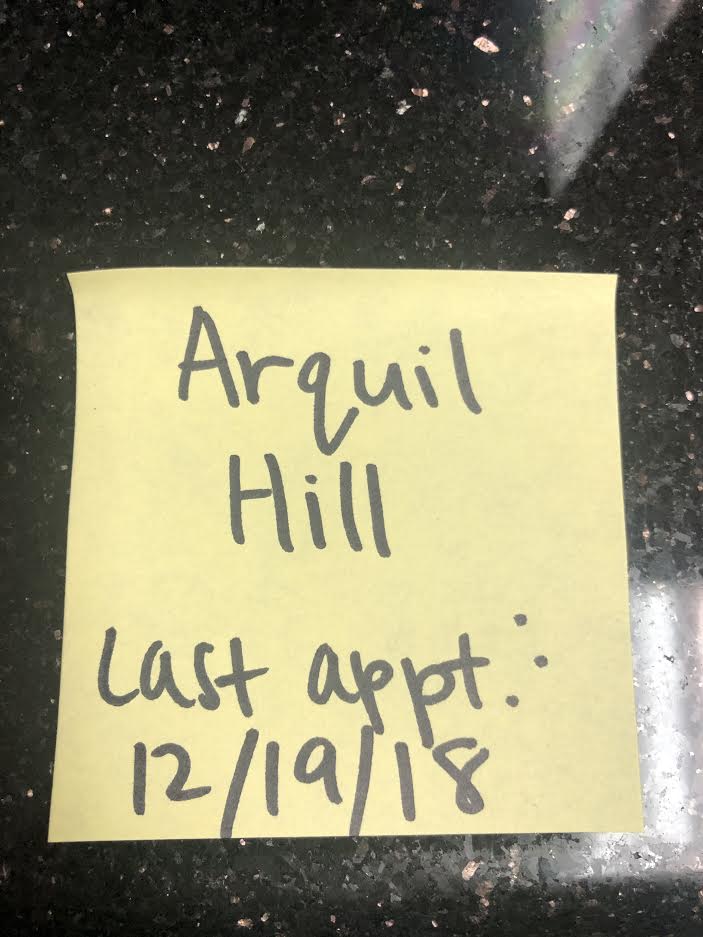 Arquil
Hill
Last appt.:
12/19/18